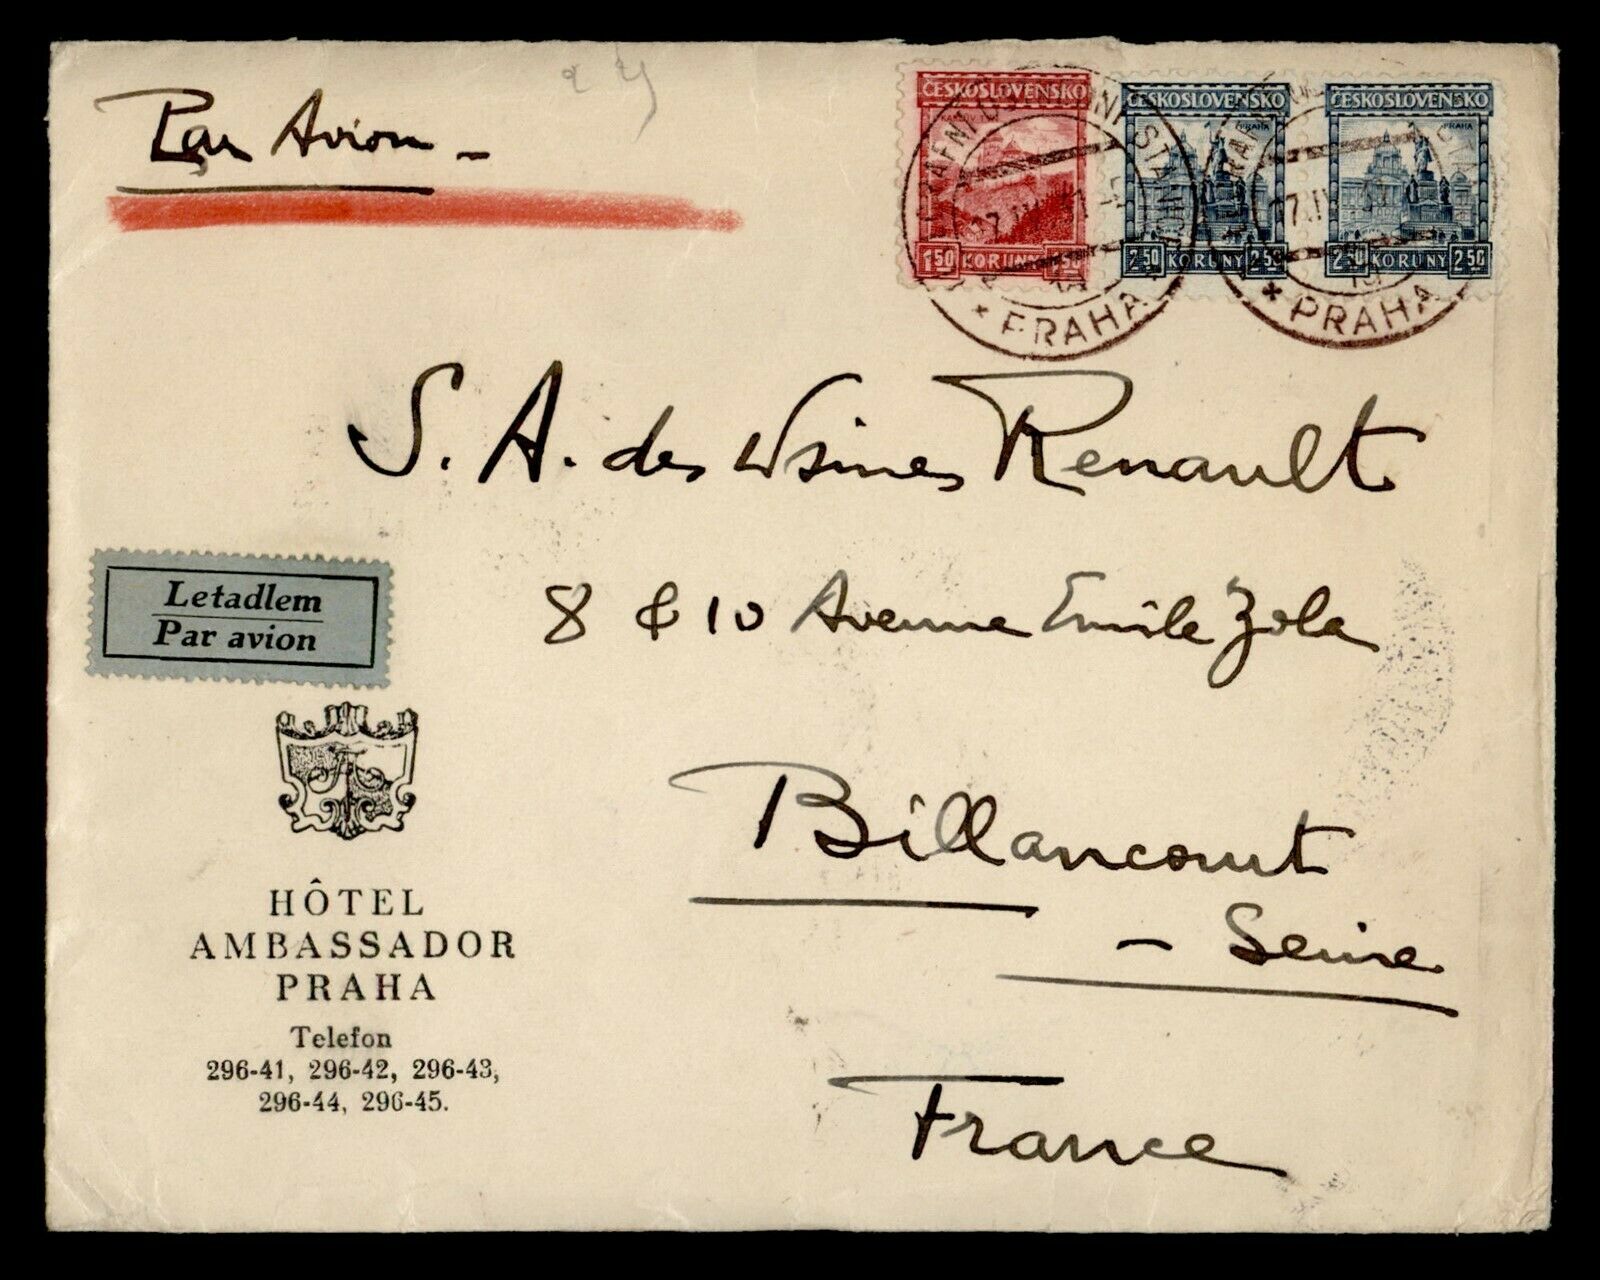 Par Avion -
ČESKOSLOVENSKO
1.50 KORUNY 1.50
ČESKOSLOVENSKO
PRAHA
2.50 KORUNY 2.50
ČESKOSLOVENSKO
PRAHA
2.50 KORUNY 2.50
* PRAHA
* PRAHA
S. A. des Usines Renault
8 & 10 Avenue Emile Zola
Billancourt
- Seine
France
Letadlem
Par avion
HÔTEL
AMBASSADOR
PRAHA
Telefon
296-41, 296-42, 296-43,
296-44, 296-45.